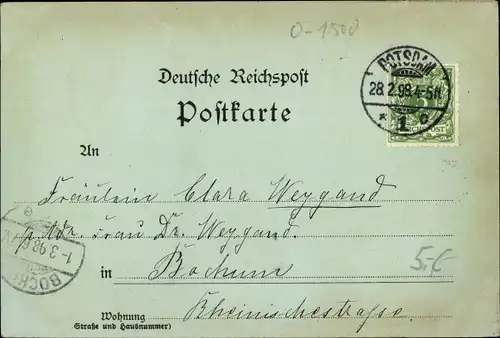 0-1500
POTSDAM
28.2.98.4-5N.
* 1 c
REICHSPOST
Deutsche Reichspost
Postkarte
An
Fräulein Clara Weygand
p. Adr. Frau Dr. Weygand.
1-3.98.
BOCHUM
5,-€
in Bochum
Wohnung Rheinischestrasse.
(Straße und Hausnummer)